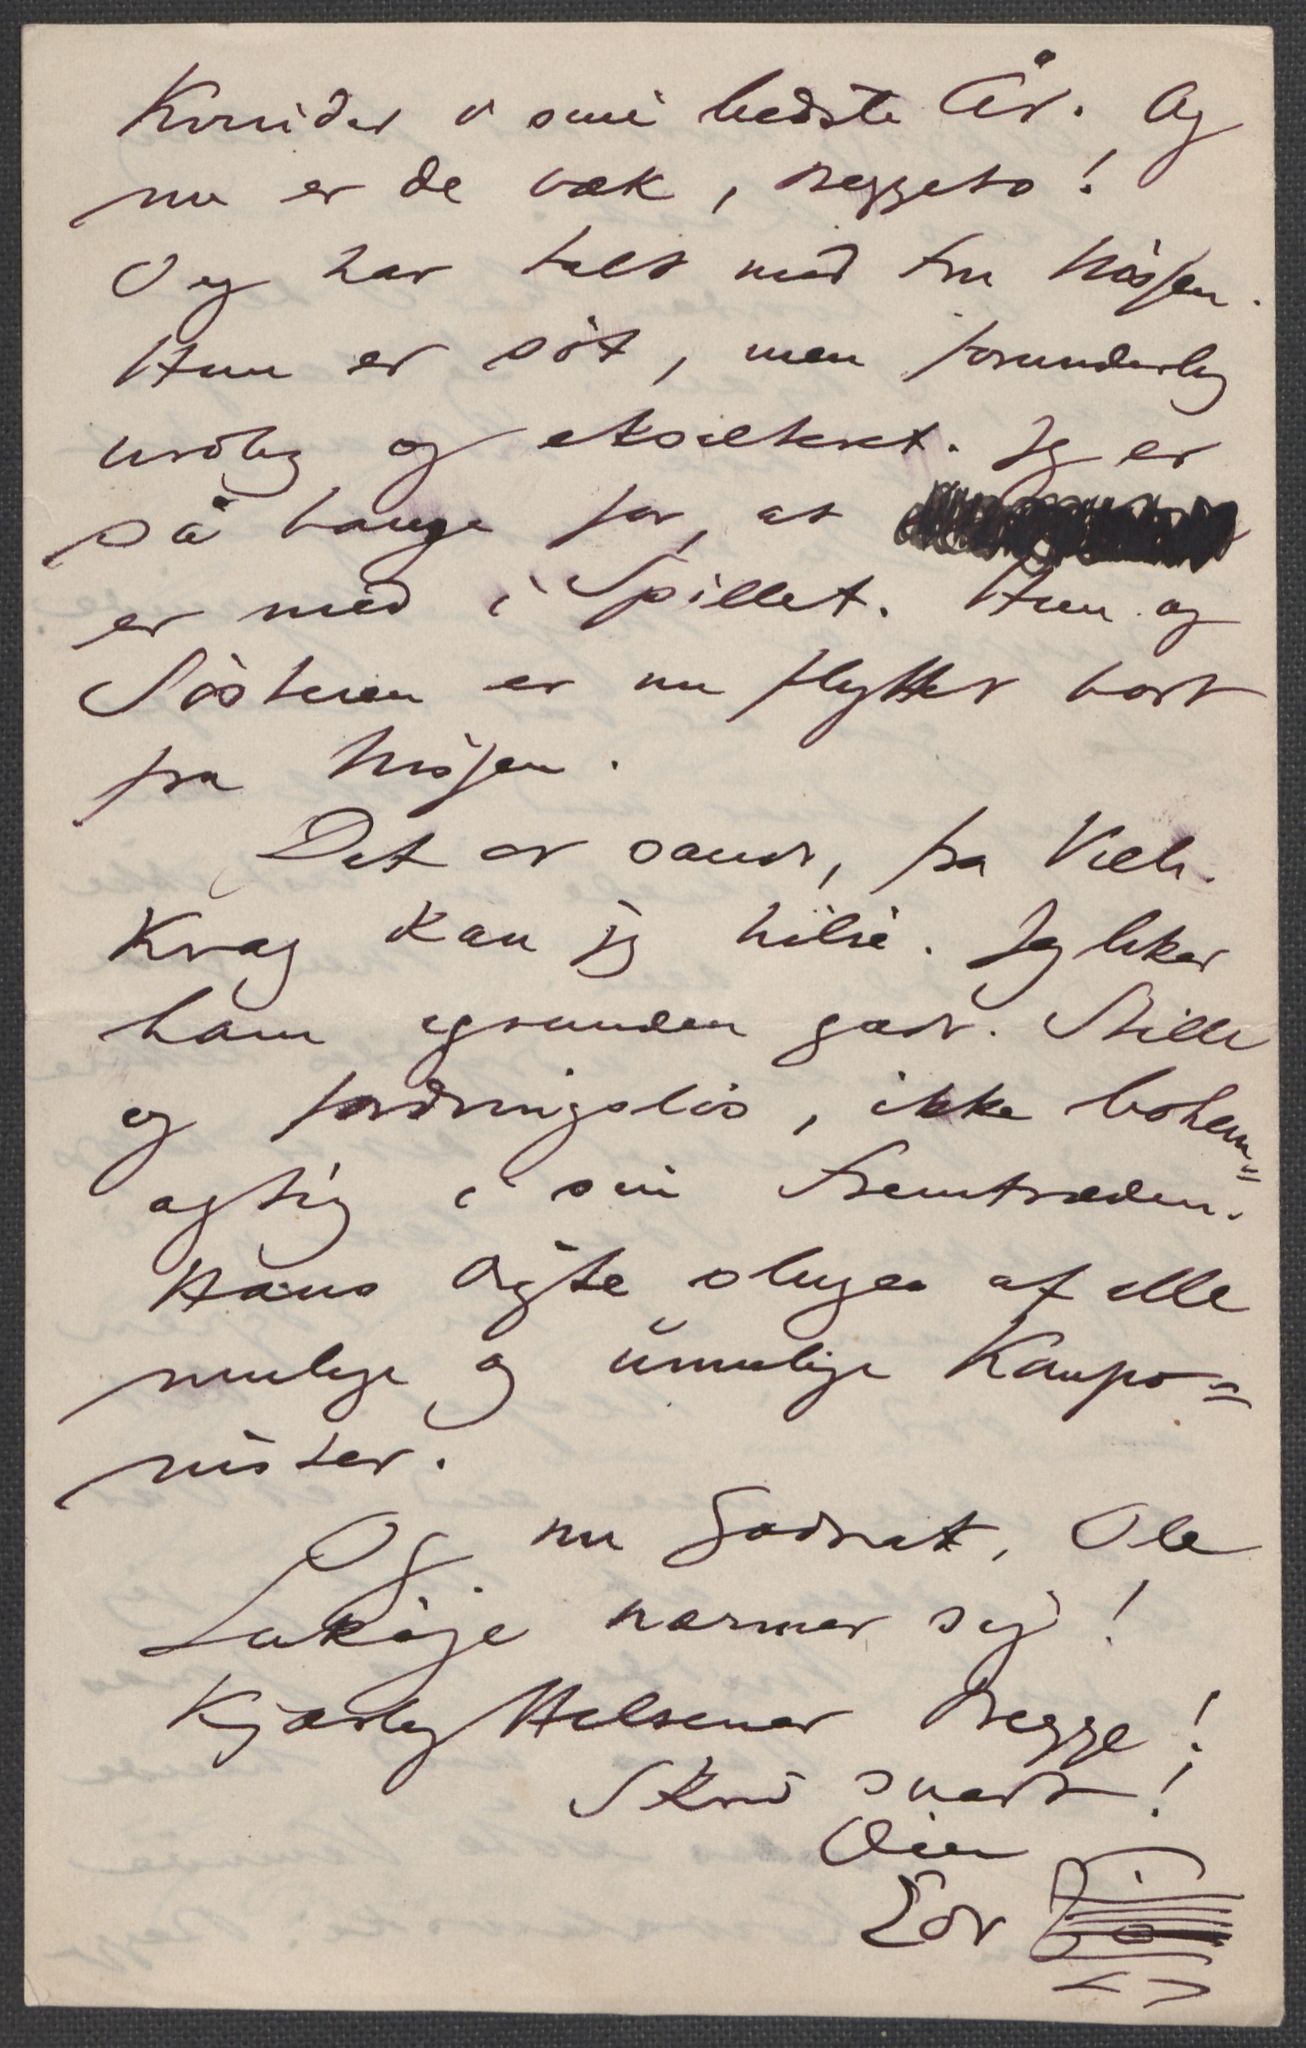 Kvinder i sine bedste År. Og
nu er de væk, beggeto!
Jeg har talt med Fru Nissen.
Hun er söt, men forunderlig
urolig og eksalteret. Jeg er
så bange for, at
er med i Spillet. Hun og
Sösteren er nu flyttet bort
fra Nissen.
Det er sandt, fra Vilh.
Krag kan jeg hilse. Jeg liker
ham igrunden godt. Stille
og fordringslös, ikke bohem=
agtig i sin Fremtræden.
Hans Digte sluges af alle
mulige og umulige Kompo=
nister.
Og nu Godnat, Ole
Luköje nærmer sig!
Kjærlig Hilsener begge!
Skriv snart!
Din
Edv